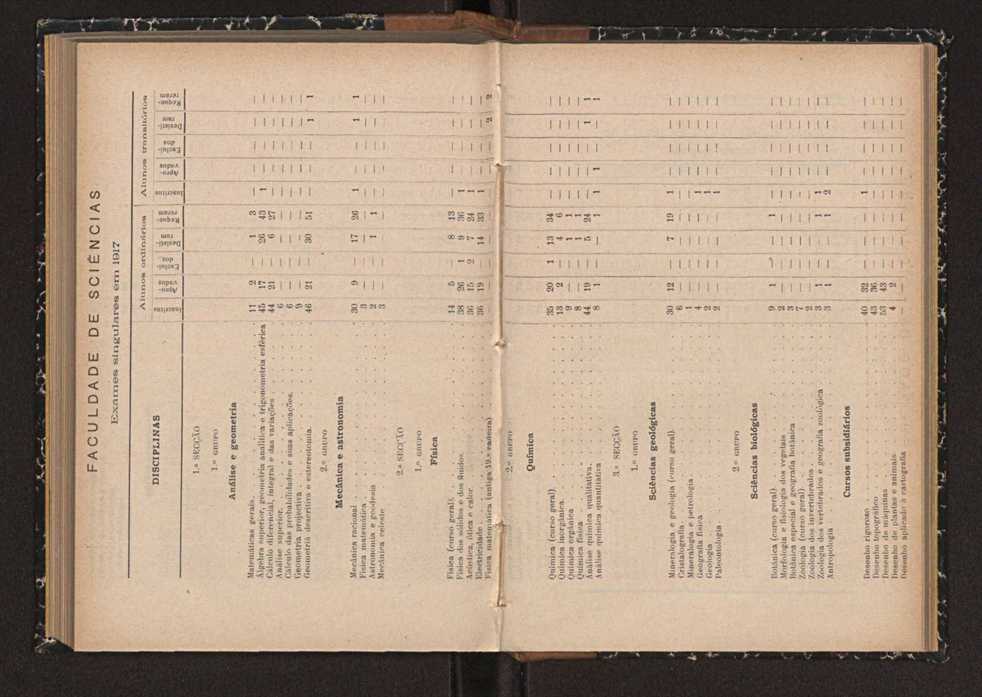 FACULDADE DE SCIÊNCIAS
Exames singulares em 1917
DISCIPLINAS | Alunos ordinários | Alunos transitórios
Inscritos | Aprovados | Excluídos | Desistiram | Requereram | Inscritos | Aprovados | Excluídos | Desistiram | Requereram
1.ª SECÇÃO
1.º GRUPO
Análise e geometria
Matemáticas gerais. 11 2 — 1 3 — — — — —
Álgebra superior, geometria analítica e trigonometria esférica 45 17 — 26 43 1 — — — —
Cálculo diferencial, integral e das variações 44 21 — 6 27 — — — — —
Análise superior. 6 — — — — — — — — —
Cálculo das probabilidades e suas aplicações. 6 — — — — — — — — —
Geometria projectiva 9 — — — — — — — — —
Geometria descritiva e estereotomia. 46 21 — 30 51 — — — 1 1
2.º GRUPO
Mecânica e astronomia
Mecânica racional 30 9 — 17 26 1 — — 1 1
Física matemática 3 — — — — — — — — —
Astronomia e geodesia 2 — — 1 1 — — — — —
Mecânica celeste 3 — — — — — — — — —
2.ª SECÇÃO
1.º GRUPO
Física
Física (curso geral) 14 5 — 8 13 — — — — —
Física dos sólidos e dos fluidos. 38 26 1 9 36 1 — — — —
Acústica, ótica e calor 36 15 2 7 24 1 — — — —
Electricidade 36 19 — 14 33 1 — — — —
Física matemática (antiga 19.ª cadeira) — — — — — — — — 2 2
2.º GRUPO
Química
Química (curso geral) 35 20 1 13 34 — — — — —
Química inorgânica. 13 2 — 4 6 — — — — —
Química orgânica 9 — — 1 1 — — — — —
Química física 8 — — 1 1 — — — — —
Análise química qualitativa. 44 19 — 5 24 — — — 1 1
Análise química quantitativa 8 1 — — 1 1 1 — — 1
3.ª SECÇÃO
1.º GRUPO
Sciências geológicas
Mineralogia e geologia (curso geral) 30 12 — 7 19 1 — — — —
Cristalografia. 6 — — — — — — — — —
Mineralogia e petrologia 1 — — — — — — — — —
Geografia física 4 — — — — 1 — — — —
Geologia 2 — — — — 1 — — — —
Paleontologia 2 — — — — 1 — — — —
2.º GRUPO
Sciências biológicas
Botânica (curso geral) 9 1 — — 1 — — — — —
Morfologia e fisiologia dos vegetais 2 — — — — — — — — —
Botânica especial e geografia botânica 3 — — — — — — — — —
Zoologia (curso geral) 7 — — — — — — — — —
Zoologia dos invertebrados 2 — — — — — — — — —
Zoologia dos vertebrados e geografia zoológica 3 1 — — 1 1 — — — —
Antropologia 3 1 — — 1 2 — — — —
Cursos subsidiários
Desenho rigoroso 40 32 — 1 — — — —
Desenho topográfico 43 36 — — — — — —
Desenho de máquinas 53 43 — — — — — —
Desenho de plantas e animais 4 2 — — — — — —
Desenho aplicado à cartografia — — — — — — — —